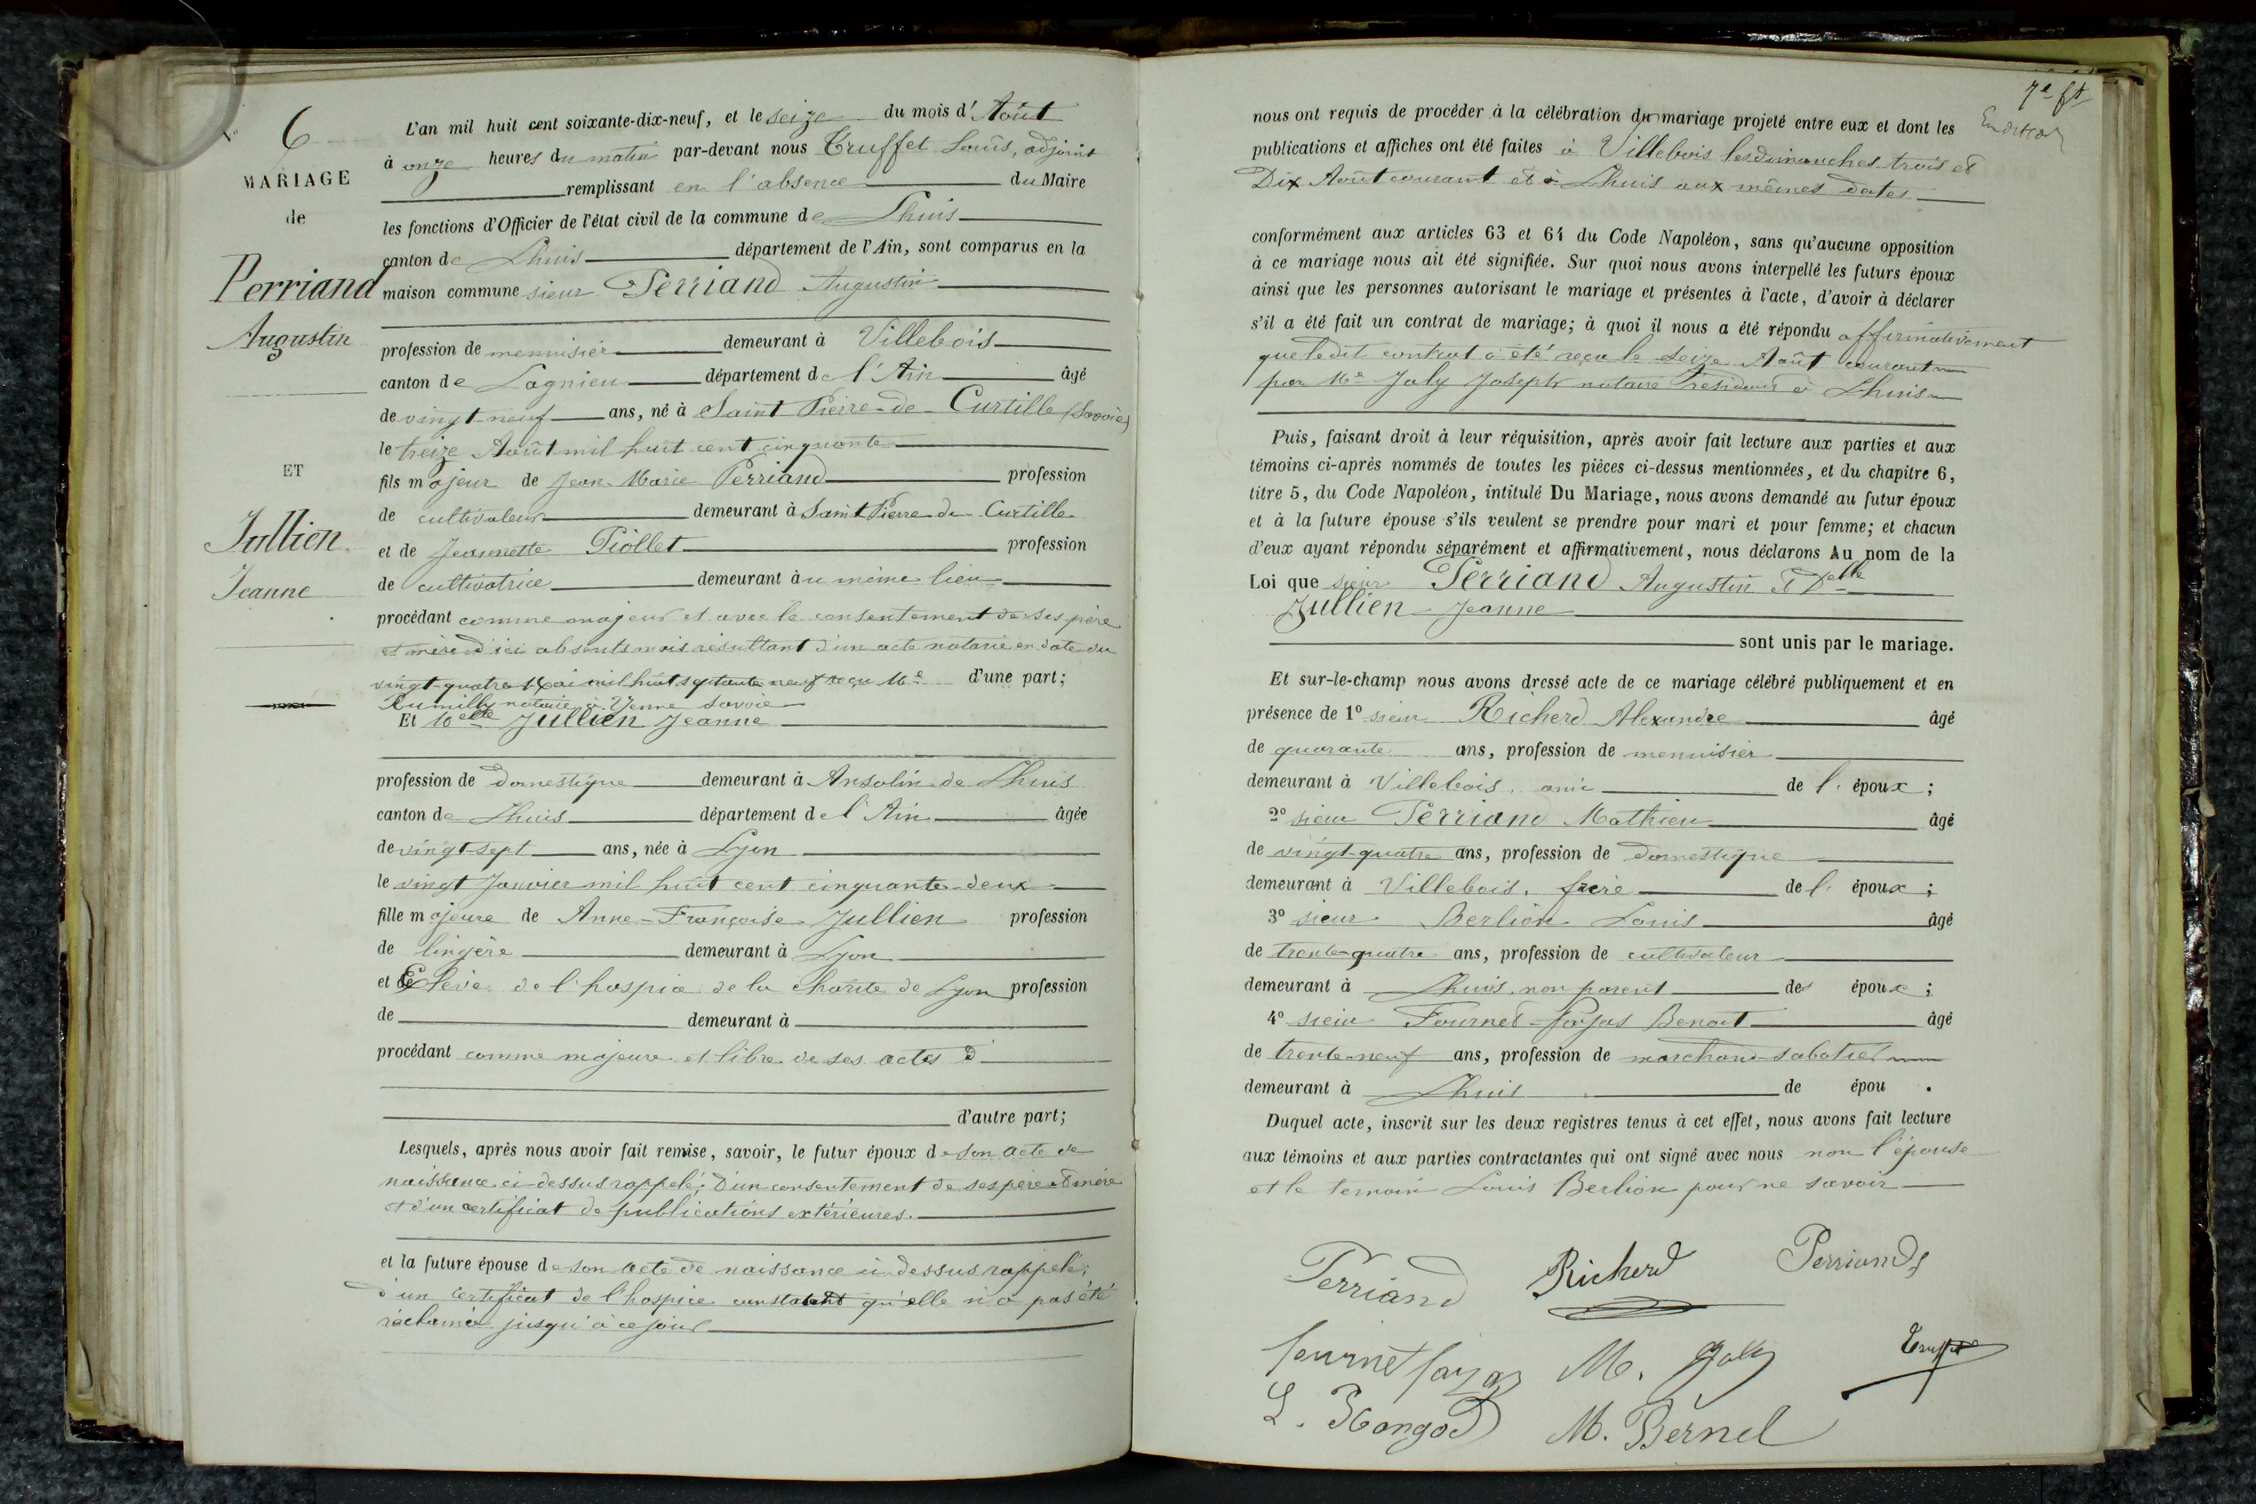 6
MARIAGE
de
Perriand
Augustin
ET
Jullien
Jeanne
L'an mil huit cent soixante-dix-neuf, et le seize du mois d'Août
à onze heures du matin par-devant nous Truffet Louis, adjoint
remplissant en l'absence du Maire
les fonctions d'Officier de l'état civil de la commune de Lhuis
canton de Lhuis département de l'Ain, sont comparus en la
maison commune sieur Perriand Augustin
profession de menuisier demeurant à Villebois
canton de Lagnieu département de l'Ain âgé
de vingt-neuf ans, né à Saint Pierre-de-Curtille (Savoie)
le treize Août mil huit cent cinquante
fils majeur de Jean-Marie Perriand profession
de cultivateur demeurant à Saint Pierre de Curtille
et de Jeannette Piollet profession
de cultivatrice demeurant au même lieu
procédant comme majeur et avec le consentement de ses père
et mère d'ici absents mais résultant d'un acte notarié en date du
vingt-quatre Mai mil huit septante neuf reçu Me d'une part;
Rumilly notaire à Yenne Savoie
Et Melle Jullien Jeanne
profession de domestique demeurant à Ansolin de Lhuis
canton de Lhuis département de l'Ain âgée
de vingt-sept ans, née à Lyon
le vingt Janvier mil huit cent cinquante-deux
fille majeure de Anne-Françoise Jullien profession
de lingère demeurant à Lyon
et de Elève de l'hospice de la charité de Lyon profession
de demeurant à
procédant comme majeure et libre de ses actes d'
d'autre part;
Lesquels, après nous avoir fait remise, savoir, le futur époux de son acte de
naissance ci-dessus rappelé; d'un consentement de ses père et mère
et d'un certificat de publications extérieures.
et la future épouse de son acte de naissance ci-dessus rappelé;
d'un certificat de l'hospice constatant qu'elle n'a pas été
réclamée jusqu'à ce jour
7e ft
nous ont requis de procéder à la célébration du mariage projeté entre eux et dont les
publications et affiches ont été faites à Villebois les dimanches trois et
Dix Août courant et à Lhuis aux mêmes dates
conformément aux articles 63 et 64 du Code Napoléon, sans qu'aucune opposition
à ce mariage nous ait été signifiée. Sur quoi nous avons interpellé les futurs époux
ainsi que les personnes autorisant le mariage et présentes à l'acte, d'avoir à déclarer
s'il a été fait un contrat de mariage; à quoi il nous a été répondu affirmativement
que ledit contrat a été reçu le seize Août courant
par Me Joly Joseph notaire résidant à Lhuis
Puis, faisant droit à leur réquisition, après avoir fait lecture aux parties et aux
témoins ci-après nommés de toutes les pièces ci-dessus mentionnées, et du chapitre 6,
titre 5, du Code Napoléon, intitulé Du Mariage, nous avons demandé au futur époux
et à la future épouse s'ils veulent se prendre pour mari et pour femme; et chacun
d'eux ayant répondu séparément et affirmativement, nous déclarons Au nom de la
Loi que sieur Perriand Augustin et Delle
Jullien Jeanne
sont unis par le mariage.
Et sur-le-champ nous avons dressé acte de ce mariage célébré publiquement et en
présence de 1º sieur Richerd Alexandre âgé
de quarante ans, profession de menuisier
demeurant à Villebois, ami de l'époux;
2º sieur Perriand Mathieu âgé
de vingt-quatre ans, profession de domestique
demeurant à Villebois, frère de l'époux;
3º sieur Berlion Louis âgé
de trente-quatre ans, profession de cultivateur
demeurant à Lhuis, non parent des époux;
4º sieur Fournet-Fayas Benoit âgé
de trente-neuf ans, profession de marchand-sabotier
demeurant à Lhuis de épou .
Duquel acte, inscrit sur les deux registres tenus à cet effet, nous avons fait lecture
aux témoins et aux parties contractantes qui ont signé avec nous non l'épouse
et le temoin Louis Berlion pour ne savoir
Perriand Richerd Perriand
fournet fayas M. Joly Truffet
L. Mangod M. Bernel